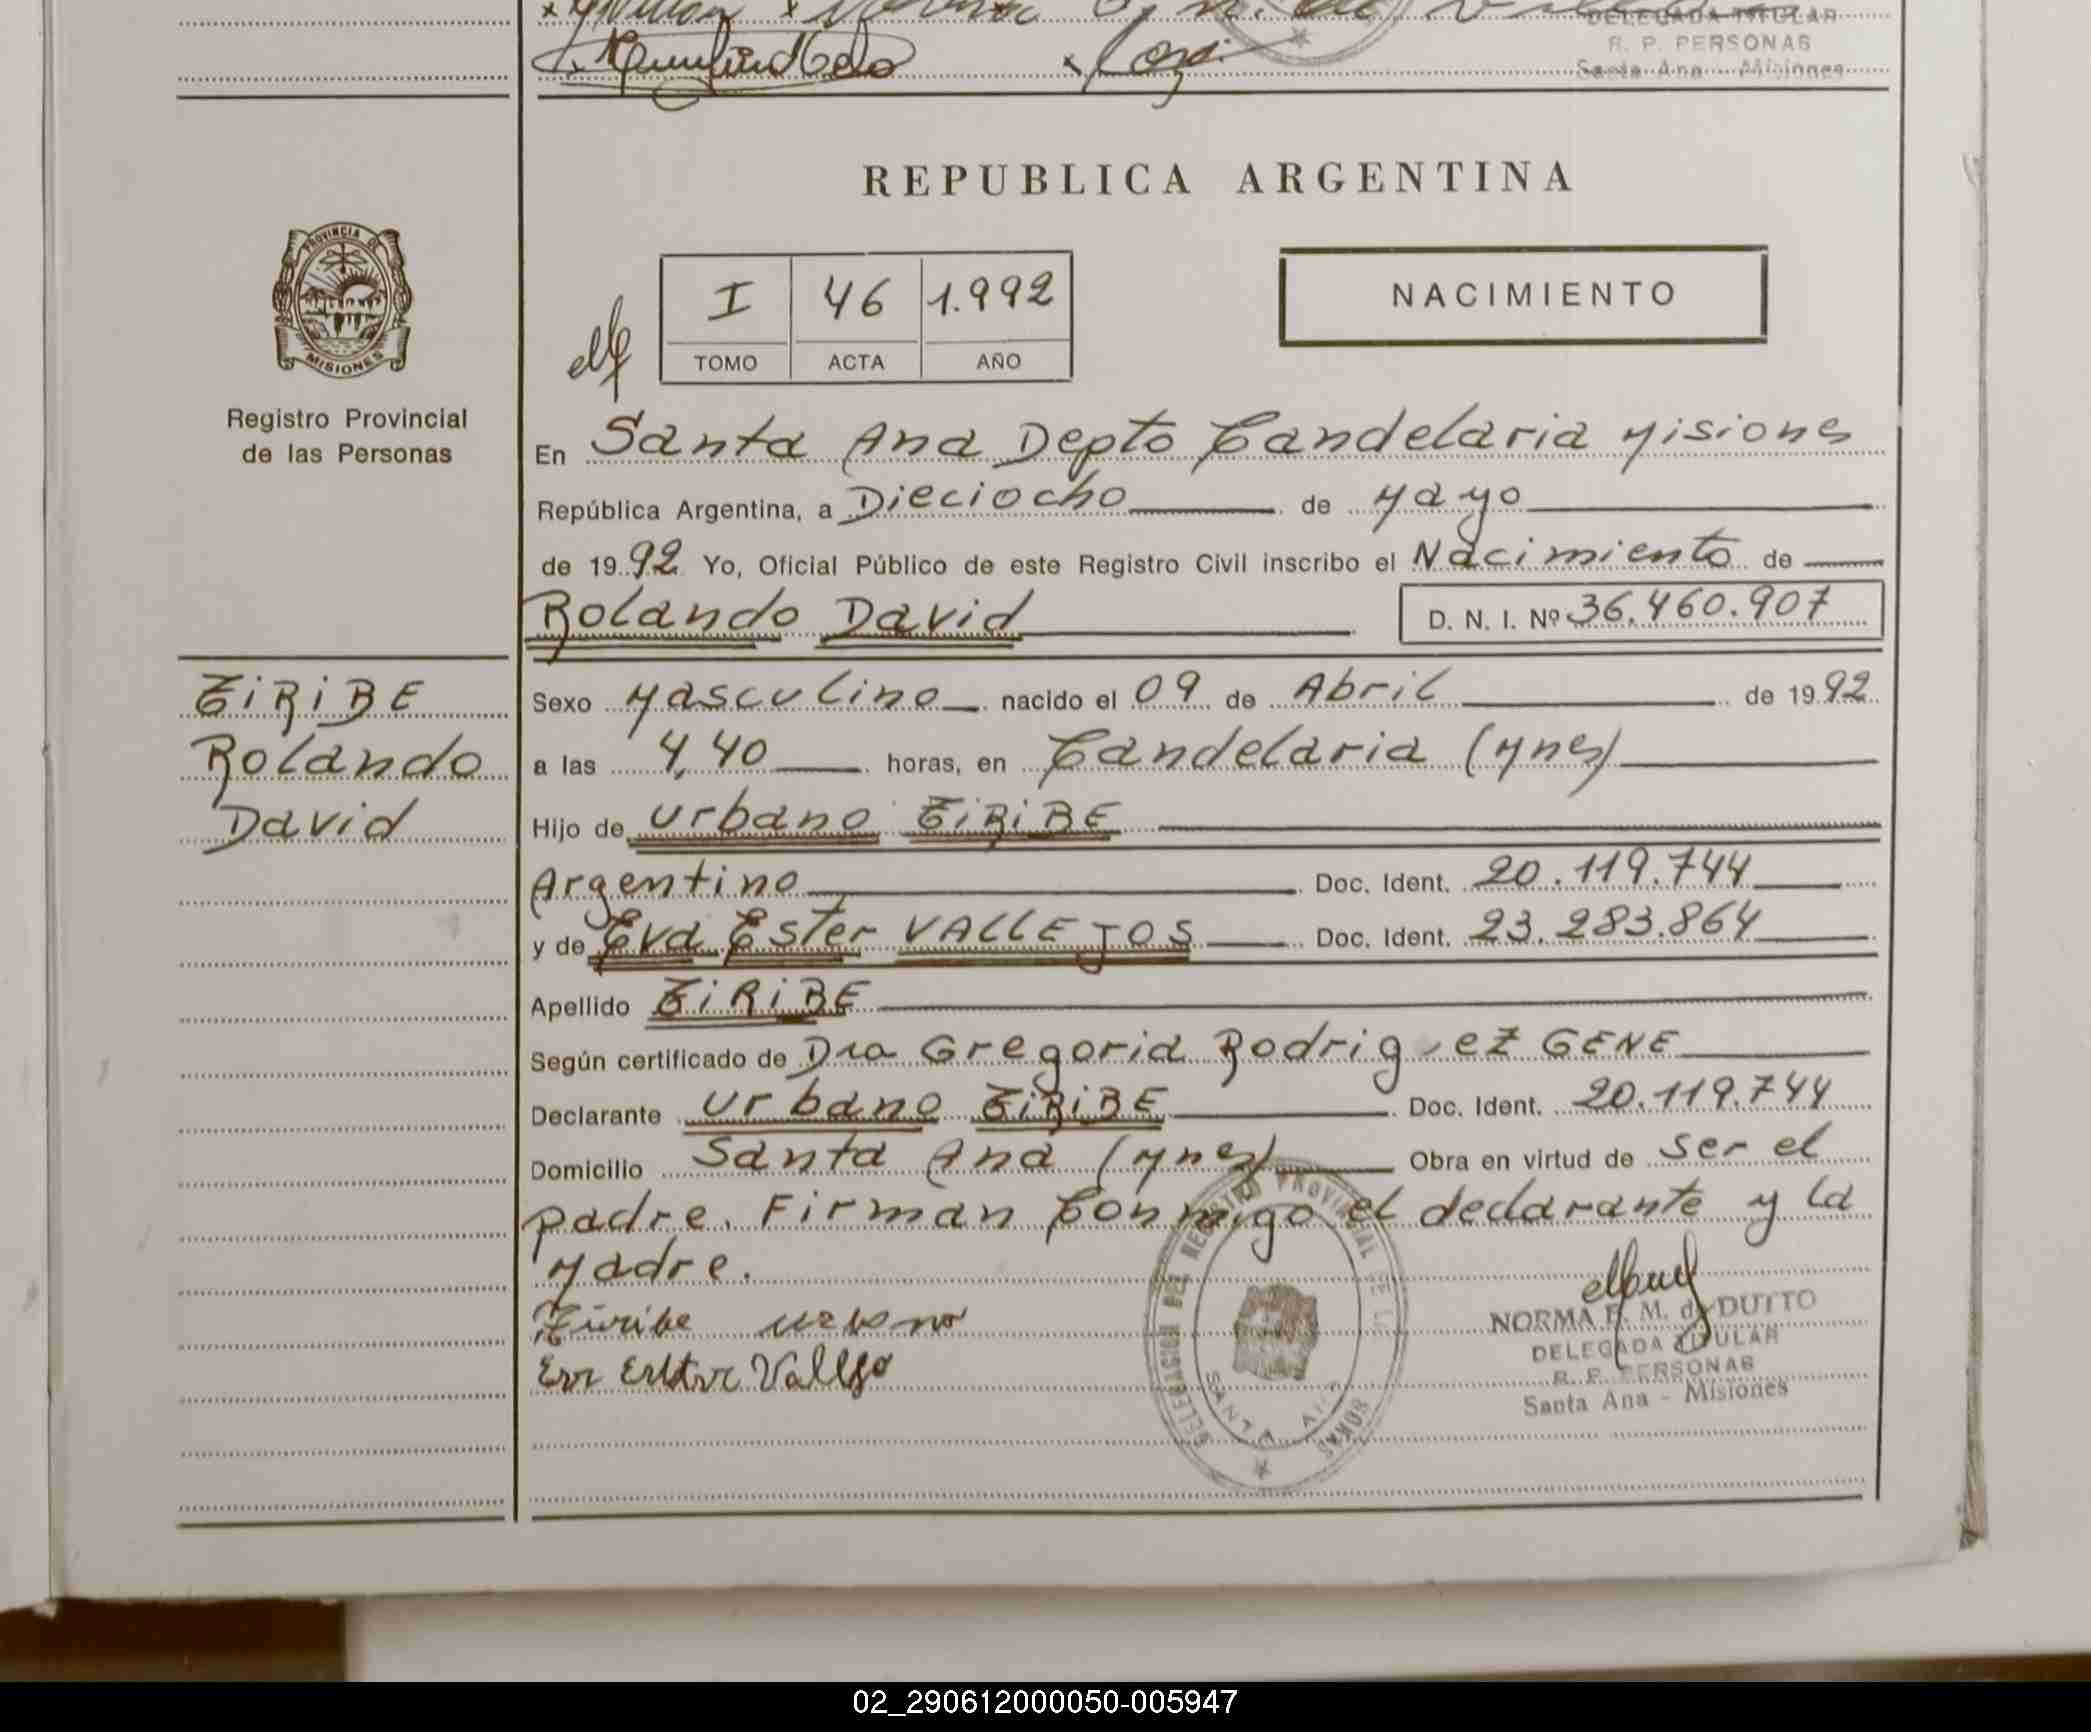 DELEGADA TITULAR
R. P. PERSONAS
Santa Ana - Misiones
REPUBLICA ARGENTINA
PROVINCIA DE
MISIONES
Registro Provincial
de las Personas
I 46 1.992
TOMO ACTA AÑO
NACIMIENTO
En Santa Ana Depto Candelaria Misiones
República Argentina, a Dieciocho de Mayo
de 1992 Yo, Oficial Público de este Registro Civil inscribo el Nacimiento de
Rolando David D. N. I. Nº 36.460.907
ZiRiBE
Rolando
David
Sexo Masculino nacido el 09 de Abril de 1992
a las 4,40 horas, en Candelaria (Mnes)
Hijo de Urbano ZiRiBE
Argentino Doc. Ident. 20.119.744
y de Eva Ester VALLEJOS Doc. Ident. 23.283.864
Apellido ZiRiBE
Según certificado de Dra Gregoria Rodriguez GENE
Declarante Urbano ZiRiBE Doc. Ident. 20.119.744
Domicilio Santa Ana (Mnes) Obra en virtud de ser el
padre. Firman Conmigo el declarante y la
Madre.
Ziribe Urbano
Vallejo
DELEGACION DEL REGISTRO PROVINCIAL DE LAS PERSONAS
SANTA ANA
NORMA E. M. de DUTTO
DELEGADA TITULAR
R. P. PERSONAS
Santa Ana - Misiones
02_290612000050-005947